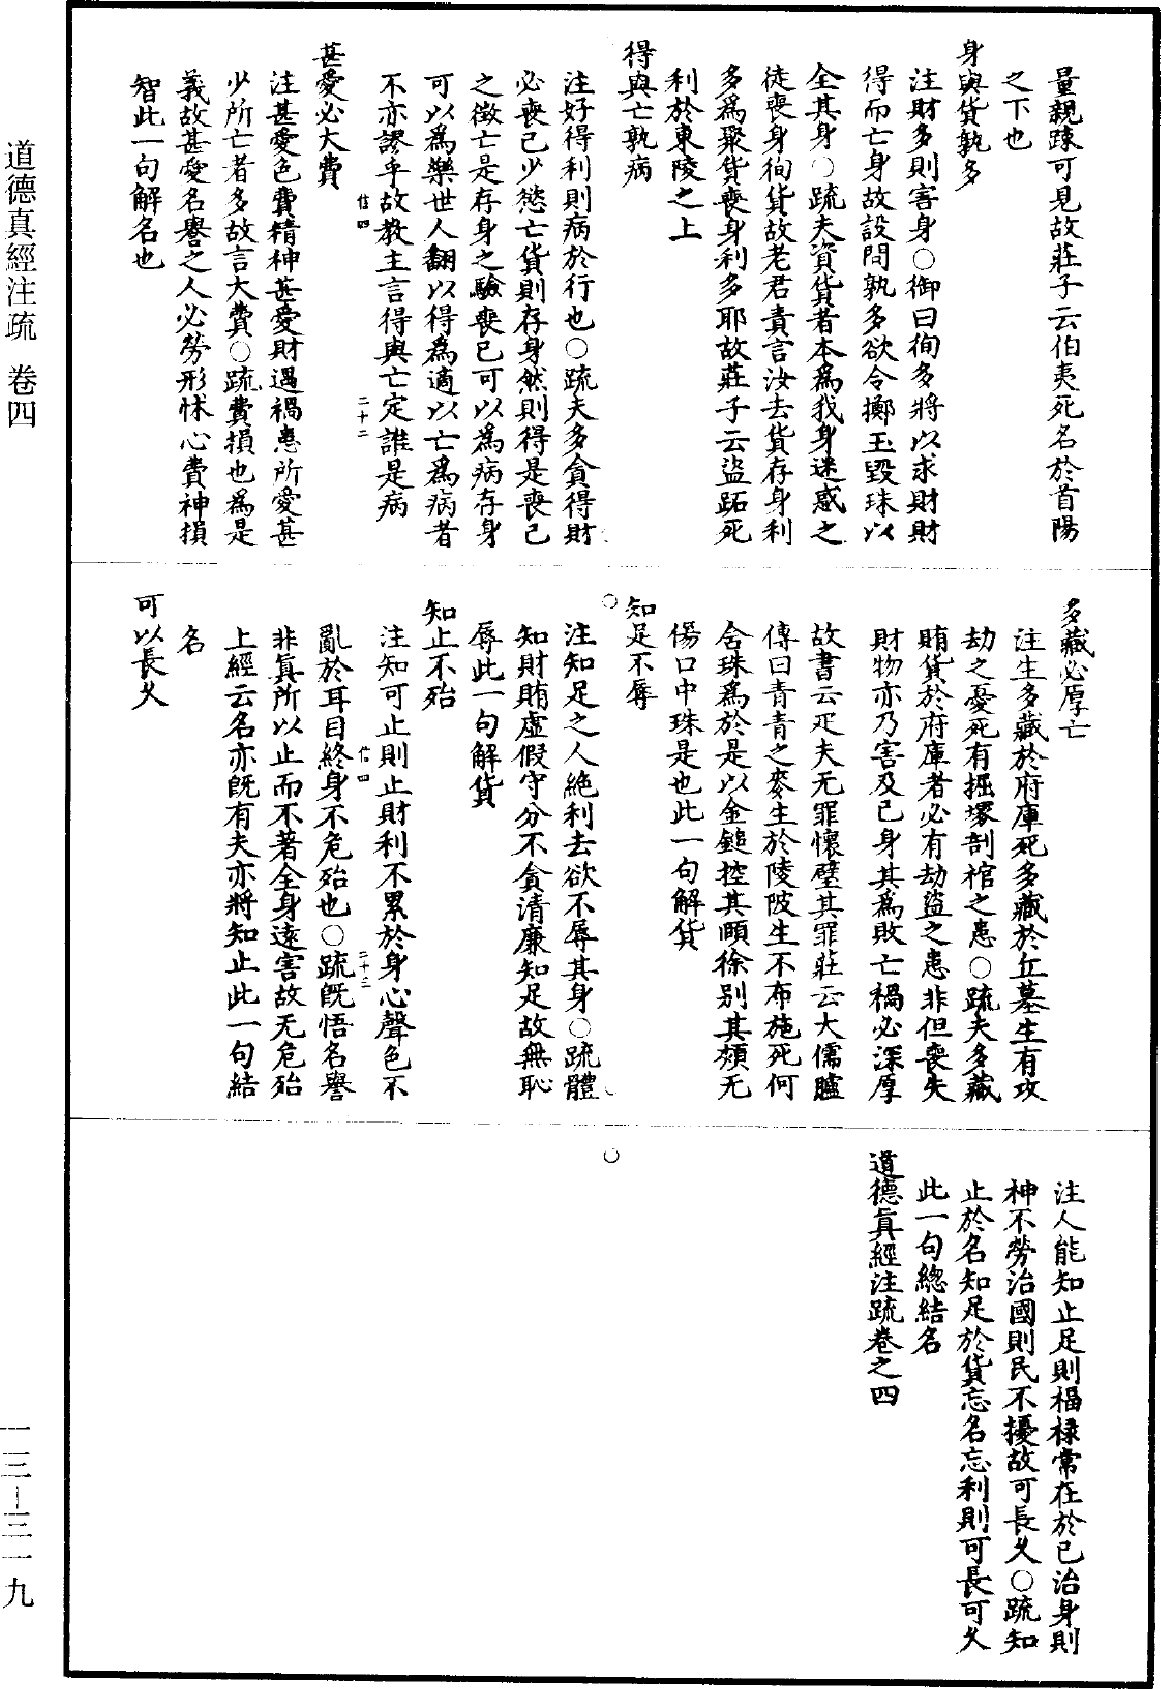 量親踈可見故莊子云伯夷死名於首陽
之下也
身與貨孰多
注財多則害身○御曰徇多將以求財財
得而亡身故設問孰多欲令擲玉毀珠以
全其身○疏夫資貨者本爲我身迷惑之
徒喪身徇貨故老君責言汝去貨存身利
多爲聚貨喪身利多耶故莊子云盜跖死
利於東陵之上
得與亡孰病
注好得利則病於行也○疏夫多貪得財
必喪己少慾亡貨則存身然則得是喪己
之徵亡是存身之驗喪己可以爲病存身
可以爲樂世人翻以得爲適以亡爲病者
不亦謬乎故教主言得與亡定誰是病
信四 二十二
甚愛必大費
注甚愛色費精神甚愛財遇禍患所愛甚
少所亡者多故言大費○疏費損也爲是
義故甚愛名譽之人必勞形怵心費神損
智此一句解名也
多藏必厚亡
注生多藏於府庫死多藏於丘墓生有攻
劫之憂死有掘塚剖棺之患○疏夫多藏
賄貨於府庫者必有劫盜之患非但喪失
財物亦乃害及己身其爲敗亡禍必深厚
故書云疋夫无罪懷璧其罪莊云大儒臚
傳曰青青之麥生於陵陂生不布施死何
含珠爲於是以金鎚控其頤徐別其頰无
傷口中珠是也此一句解貨
知足不辱
注知足之人絶利去欲不辱其身○疏體
知財賄虛假守分不貪清廉知足故無恥
辱此一句解貨
知止不殆
注知可止則止財利不累於身心聲色不
亂於耳目終身不危殆也○疏旣悟名譽
信四 二十三
非眞所以止而不著全身遠害故无危殆
上經云名亦旣有夫亦將知止此一句結
名
可以長久
注人能知止足則福祿常在於己治身則
神不勞治國則民不擾故可長久○疏知
止於名知足於貨忘名忘利則可長可久
此一句總結名
道德眞經注疏卷之四
道德真經注疏 卷四
一三—三一九